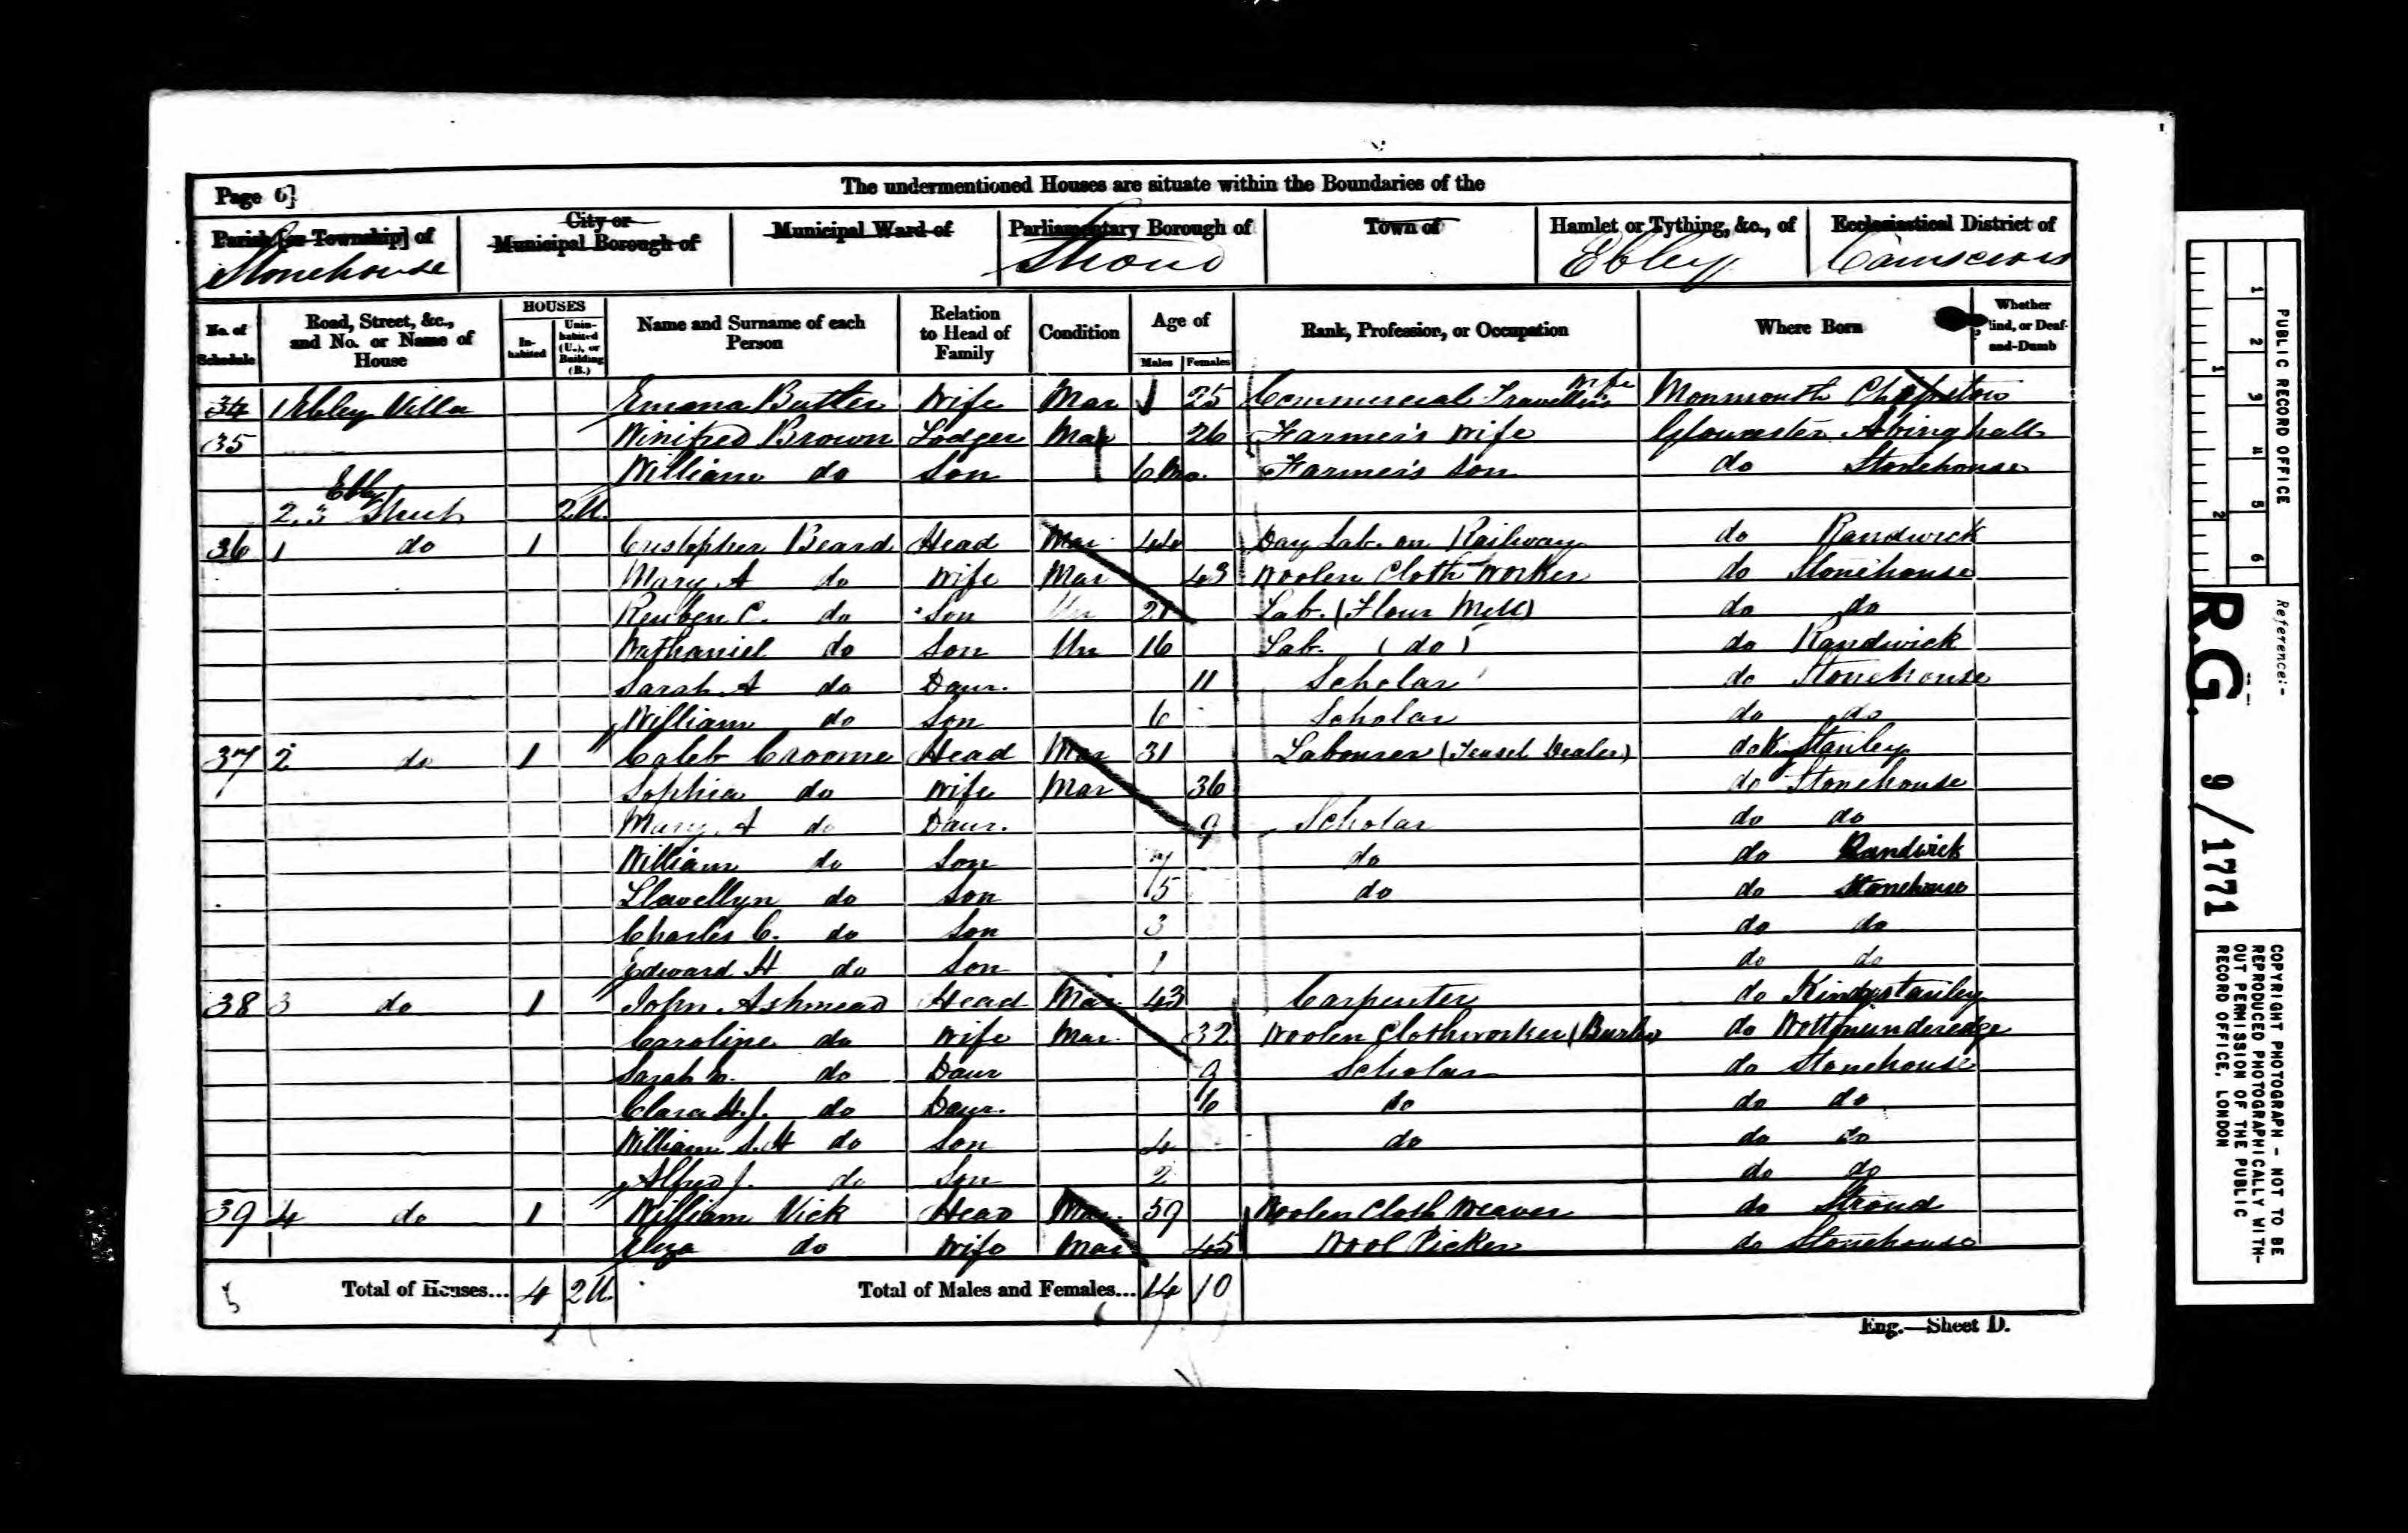 Page 6]
The undermentioned Houses are situate within the Boundaries of the
Parish [or Township] of
City or Municipal Borough of
Municipal Ward of
Parliamentary Borough of
Town of
Hamlet or Tything, &c., of
Ecclesiastical District of
Stonehouse Stroud Ebley Cainscross
No. of Schedule
Road, Street, &c., and No. or Name of House
HOUSES
In-habited
Unin-habited (U.), or Building (B.)
Name and Surname of each Person
Relation to Head of Family
Condition
Age of
Males Females
Rank, Profession, or Occupation
Where Born
Whether Blind, or Deaf-and-Dumb
34 1 Ebley Villa Emma Butler Wife Mar 25 Commercial Traveller's Wife Monmouth Chepstow
35 Winifred Brown Lodger Mar 26 Farmer's Wife Gloucester Abinghall
William do Son 6 Mo. Farmer's Son do Stonehouse
2.3 Ebley Street 2 U.
36 1 do 1 Cristopher Beard Head Mar 44 Day Lab. on Railway do Randwick
Mary A do Wife Mar 43 Woolen Cloth Worker do Stonehouse
Reuben C. do Son Un 21 Lab. (Flour Mill) do do
Nathaniel do Son Un 16 Lab. (do) do Randwick
Sarah A do Daur. 11 Scholar do Stonehouse
William do Son 6 Scholar do do
37 2 do 1 Caleb Croome Head Mar 31 Labourer (Teasel Dealer) do K. Stanley
Sophia do Wife Mar 36 do Stonehouse
Mary A do Daur. 9 Scholar do do
William do Son 7 do do Randwick
Llewellyn do Son 5 do do Stonehouse
Charles C. do Son 3 do do
Edward H do Son 1 do do
38 3 do 1 John Ashmead Head Mar 43 Carpenter do Kingstanley
Caroline do Wife Mar. 32 Woolen Clothworker (Burler) do Wottonunderedge
Sarah do Daur 9 Scholar do Stonehouse
Clara H.J. do Daur. 6 do do do
William S.H do Son 4 do do do
Alfred J. do Son 2 do do
39 4 do 1 William Vick Head Mar. 59 Woolen Cloth Weaver do Stroud
Eliza do Wife Mar 45 Wool Picker do Stonehouse
Total of Houses... 4 2 U. Total of Males and Females... 14 10
Eng.—Sheet D.
PUBLIC RECORD OFFICE
1 2 3 4 5 6
1 2
Reference:-
R.G. 9/1771
COPYRIGHT PHOTOGRAPH - NOT TO BE
REPRODUCED PHOTOGRAPHICALLY WITH-
OUT PERMISSION OF THE PUBLIC
RECORD OFFICE, LONDON